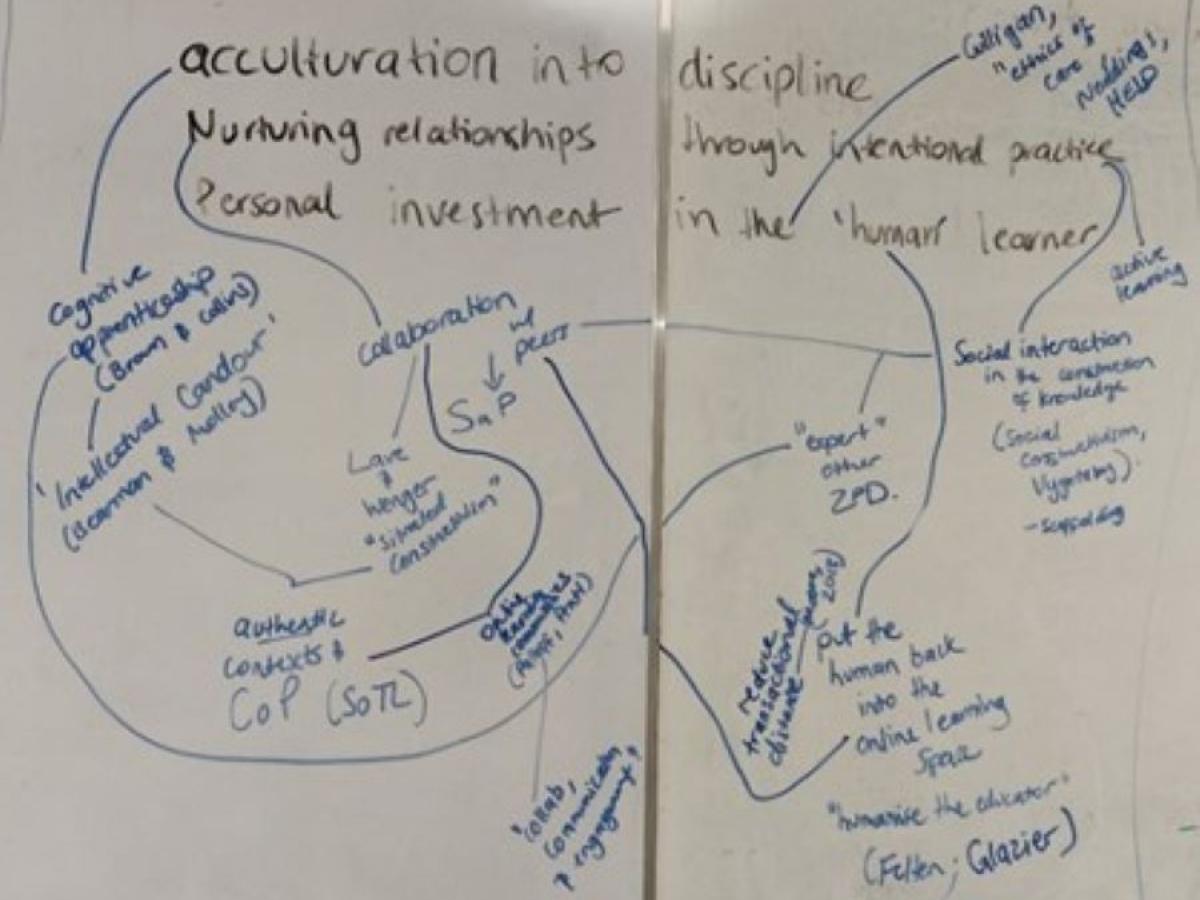 acculturation into discipline
Nurturing relationships through intentional practice
Personal investment in the 'human' learner
Gilligan,
"ethics of
care
Noddings,
HELD
active
learning
Cognitive
apprenticeship
(Brown & Collins)
'Intellectual Candour'
(Bearman & Molloy)
Collaboration
w/
peers
SaP
Lave
&
Wenger
"Situated
Constructivism"
authentic
contexts &
CoP (SoTL)
'collab,
communication,
engagement'
"expert"
other
ZPD.
Social interaction
in the construction
of knowledge
(Social
constructivism,
Vygotsky)
- Scaffolding
reduce
transactional
distance
put the
human back
into the
online learning
space
"humanise the educator"
(Felten; Glazier)